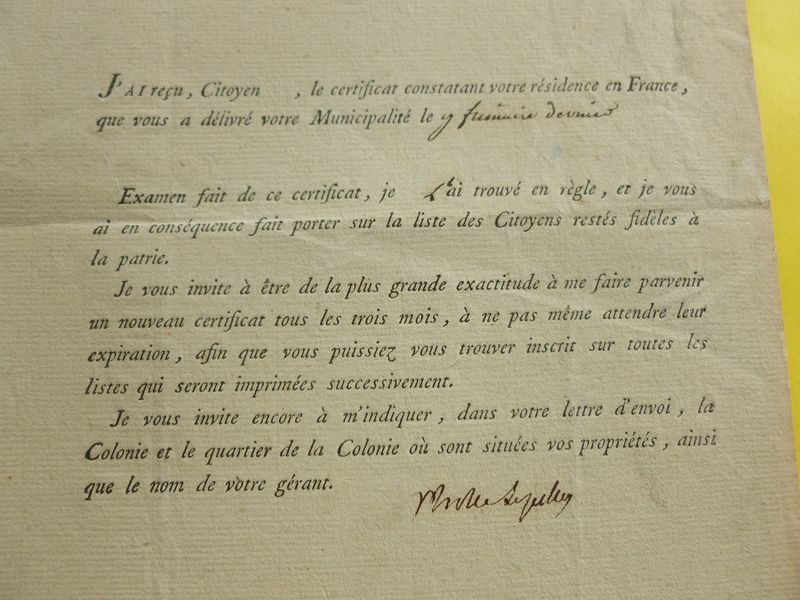 J'AI reçu, Citoyen , le certificat constatant votre résidence en France,
que vous a délivré votre Municipalité le 9 frimaire dernier
Examen fait de ce certificat, je l'ai trouvé en règle, et je vous
ai en conséquence fait porter sur la liste des Citoyens restés fidèles à
la patrie.
Je vous invite à être de la plus grande exactitude à me faire parvenir
un nouveau certificat tous les trois mois, à ne pas même attendre leur
expiration, afin que vous puissiez vous trouver inscrit sur toutes les
listes qui seront imprimées successivement.
Je vous invite encore à m'indiquer, dans votre lettre d'envoi, la
Colonie et le quartier de la Colonie où sont situées vos propriétés, ainsi
que le nom de votre gérant.